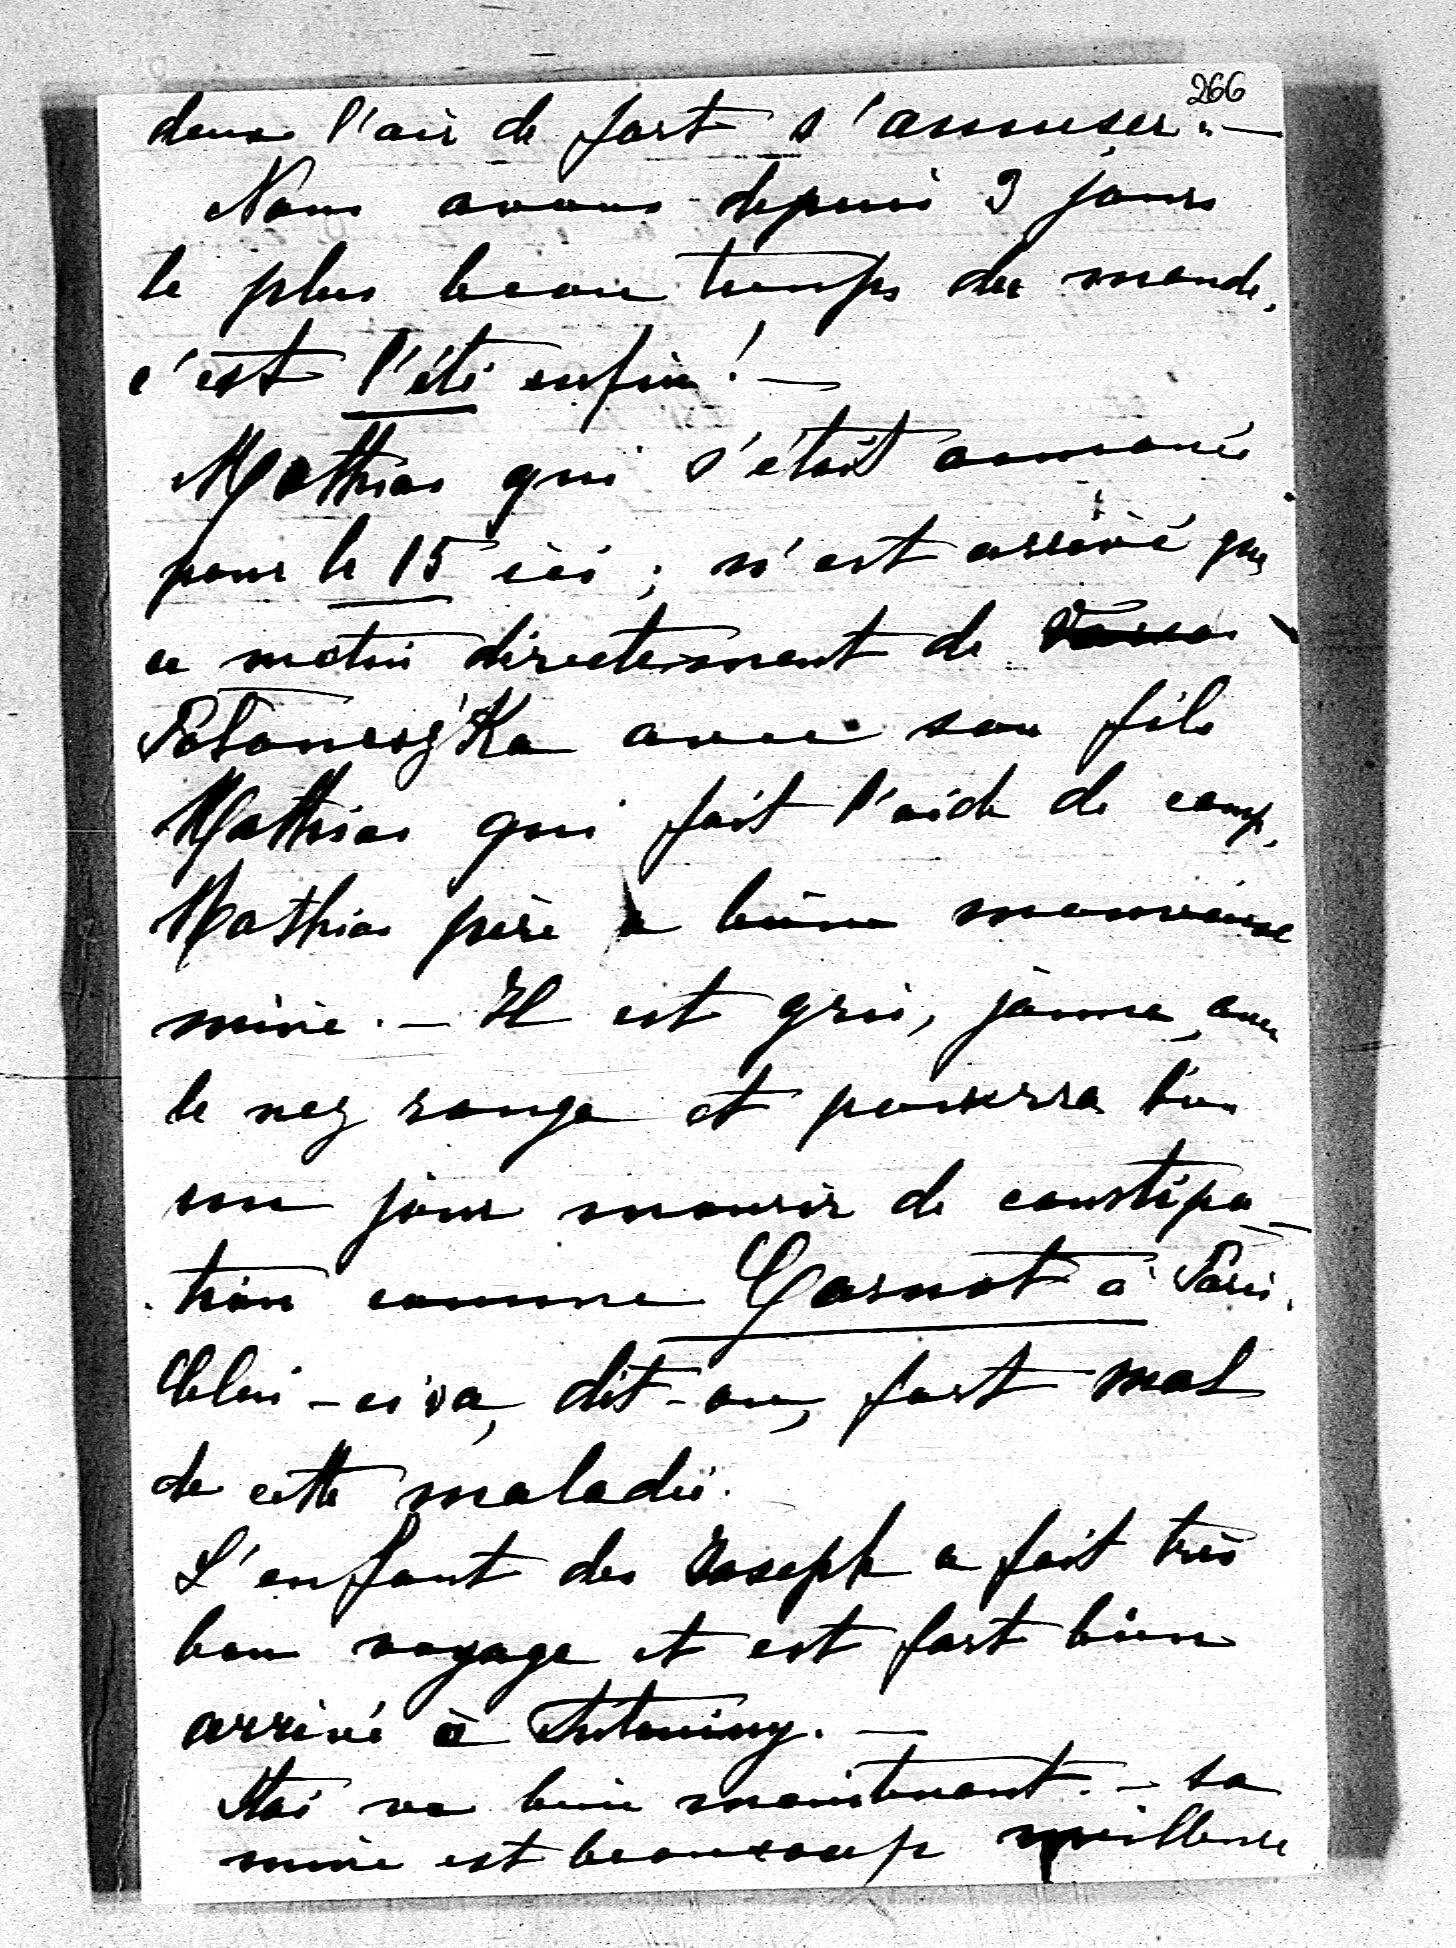 266
deux l'air de fort s'amuser. —
Nous avons depuis 3 jours
le plus beau temps du monde,
c'est l'été enfin! —
Mathias qui s'était annoncé
pour le 15 ici; n'est arrivé que
ce matin directement de
avec son fils
Mathias qui fait l'aide de camp.
Mathias père a bien mauvaise
mine. — Il est gris, jaune, avec
le nez rouge et pourra bien
un jour mourir de constipa-
tion comme Carnot à Paris.
Celui-ci va, dit-on, fort mal
de cette maladie.
L'enfant des Joseph a fait très
bon voyage et est fort bien
arrivé à Antoniny. —
va bien maintenant. — Sa
mine est beaucoup meilleure